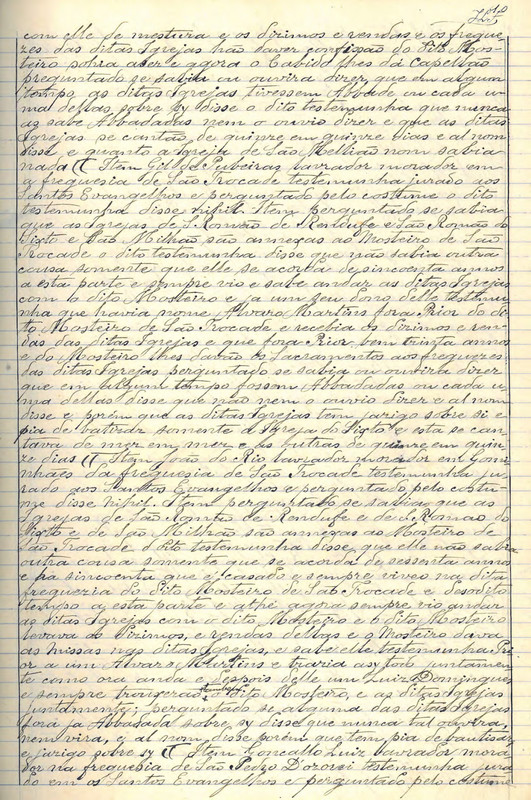 com elle de mestura e os dizimos e rendas e os fregue
zes das ditas Igrejas hão daver confissão do dito Mos-
teiro sohia aver e agora o Cabido lhes dá capellão
preguntado se sabia ou ouvira dizer que em algum
tempo as ditas Igrejas tivessem Abbade ou cada u
ma dellas sobre sy disse o dito testemunha que nunca
as sabe Abbadadas nem o ouvio dizer e que as ditas
Igrejas se cantão de quinze em quinze dias e al nom
disse e quanto a Igreja de São Milhão nom sabia
nada Item Gil de Pubeiras lavrador morador em
a freguesia de São Trocade testemunha jurado aos
Santos Evangelhos e perguntado pelo costume o dito
testemunha disse nihil. Item perguntado se sabia
que as Igrejas de S. Romão de Rendufe e São Romão do
Sisto e São Milhão são anneças ao Mosteiro de São
Trocade o dito testemunha disse que não sabia outra
cousa somente que elle se acorda de sincoenta annos
a esta parte e sempre vio e sabe andar as ditas Igrejas
com o dito Mosteiro e ja um seu dono delle testemu
nha que havia nome Alvaro Martins fora Prior do di
to Mosteiro de São Trocade e recebia os dizimos e ren-
das das ditas Igrejas e que fora Prior bem trinta annos
e do Mosteiro lhes davão os Sacramentos aos freguezes
das ditas Igrejas perguntado se sabia ou ouvira dizer
que em algum tempo fossem Abbadadas ou cada u
ma dellas disse que não nem o ouvio dizer e al nom
disse e porém que as ditas Igrejas tem jazigo sobre si e
pia de batizar somente a Igreja do Sisto e esta se can
tava de mez em mez e as outras de quinze em quin
ze dias Item João do Rio lavrador morador em Gomi
nhães da freguesia de São Trocade testemunha ju
rado aos Santos Evangelhos e perguntado pelo costu-
me disse nihil. Item perguntado se sabia que as
Igrejas de São Romão de Rendufe e de S. Romão do
Sisto e de São Milhão são anneças ao Mosteiro de
São Trocade o dito testemunha disse que elle não sabia
outra cousa somente que se acorda de sessenta annos
e ha sincoenta que é casado e sempre viveo na dita
freguezia do dito Mosteiro de São Trocade e desodito
tempo a esta parte e athé agora sempre vio andar
as ditas Igrejas com o dito Mosteiro e o dito Mosteiro
levava os dizimos, e rendas dellas e o Mosteiro dava
as missas nas ditas Igrejas, e sabe elle testemunha Pri
or a um Alvaro Martins e trazia asy todo juntamen
te como ora anda e despois delle um Luiz Domingues
e sempre trouxerão o dito Mosteiro, e as ditas Igrejas
juntamente; perguntado se alguma das ditas Igrejas
fora ja Abbadada sobre sy disse que nunca tal ouvira,
nem vira, e al nom disse porém que tem pia de bautizar
e jazigo sobre sy Item Goncallo Luiz lavrador mora
dor na freguesia de São Pedro testemunha jura
do em os Santos Evangelhos e perguntado pelo costume